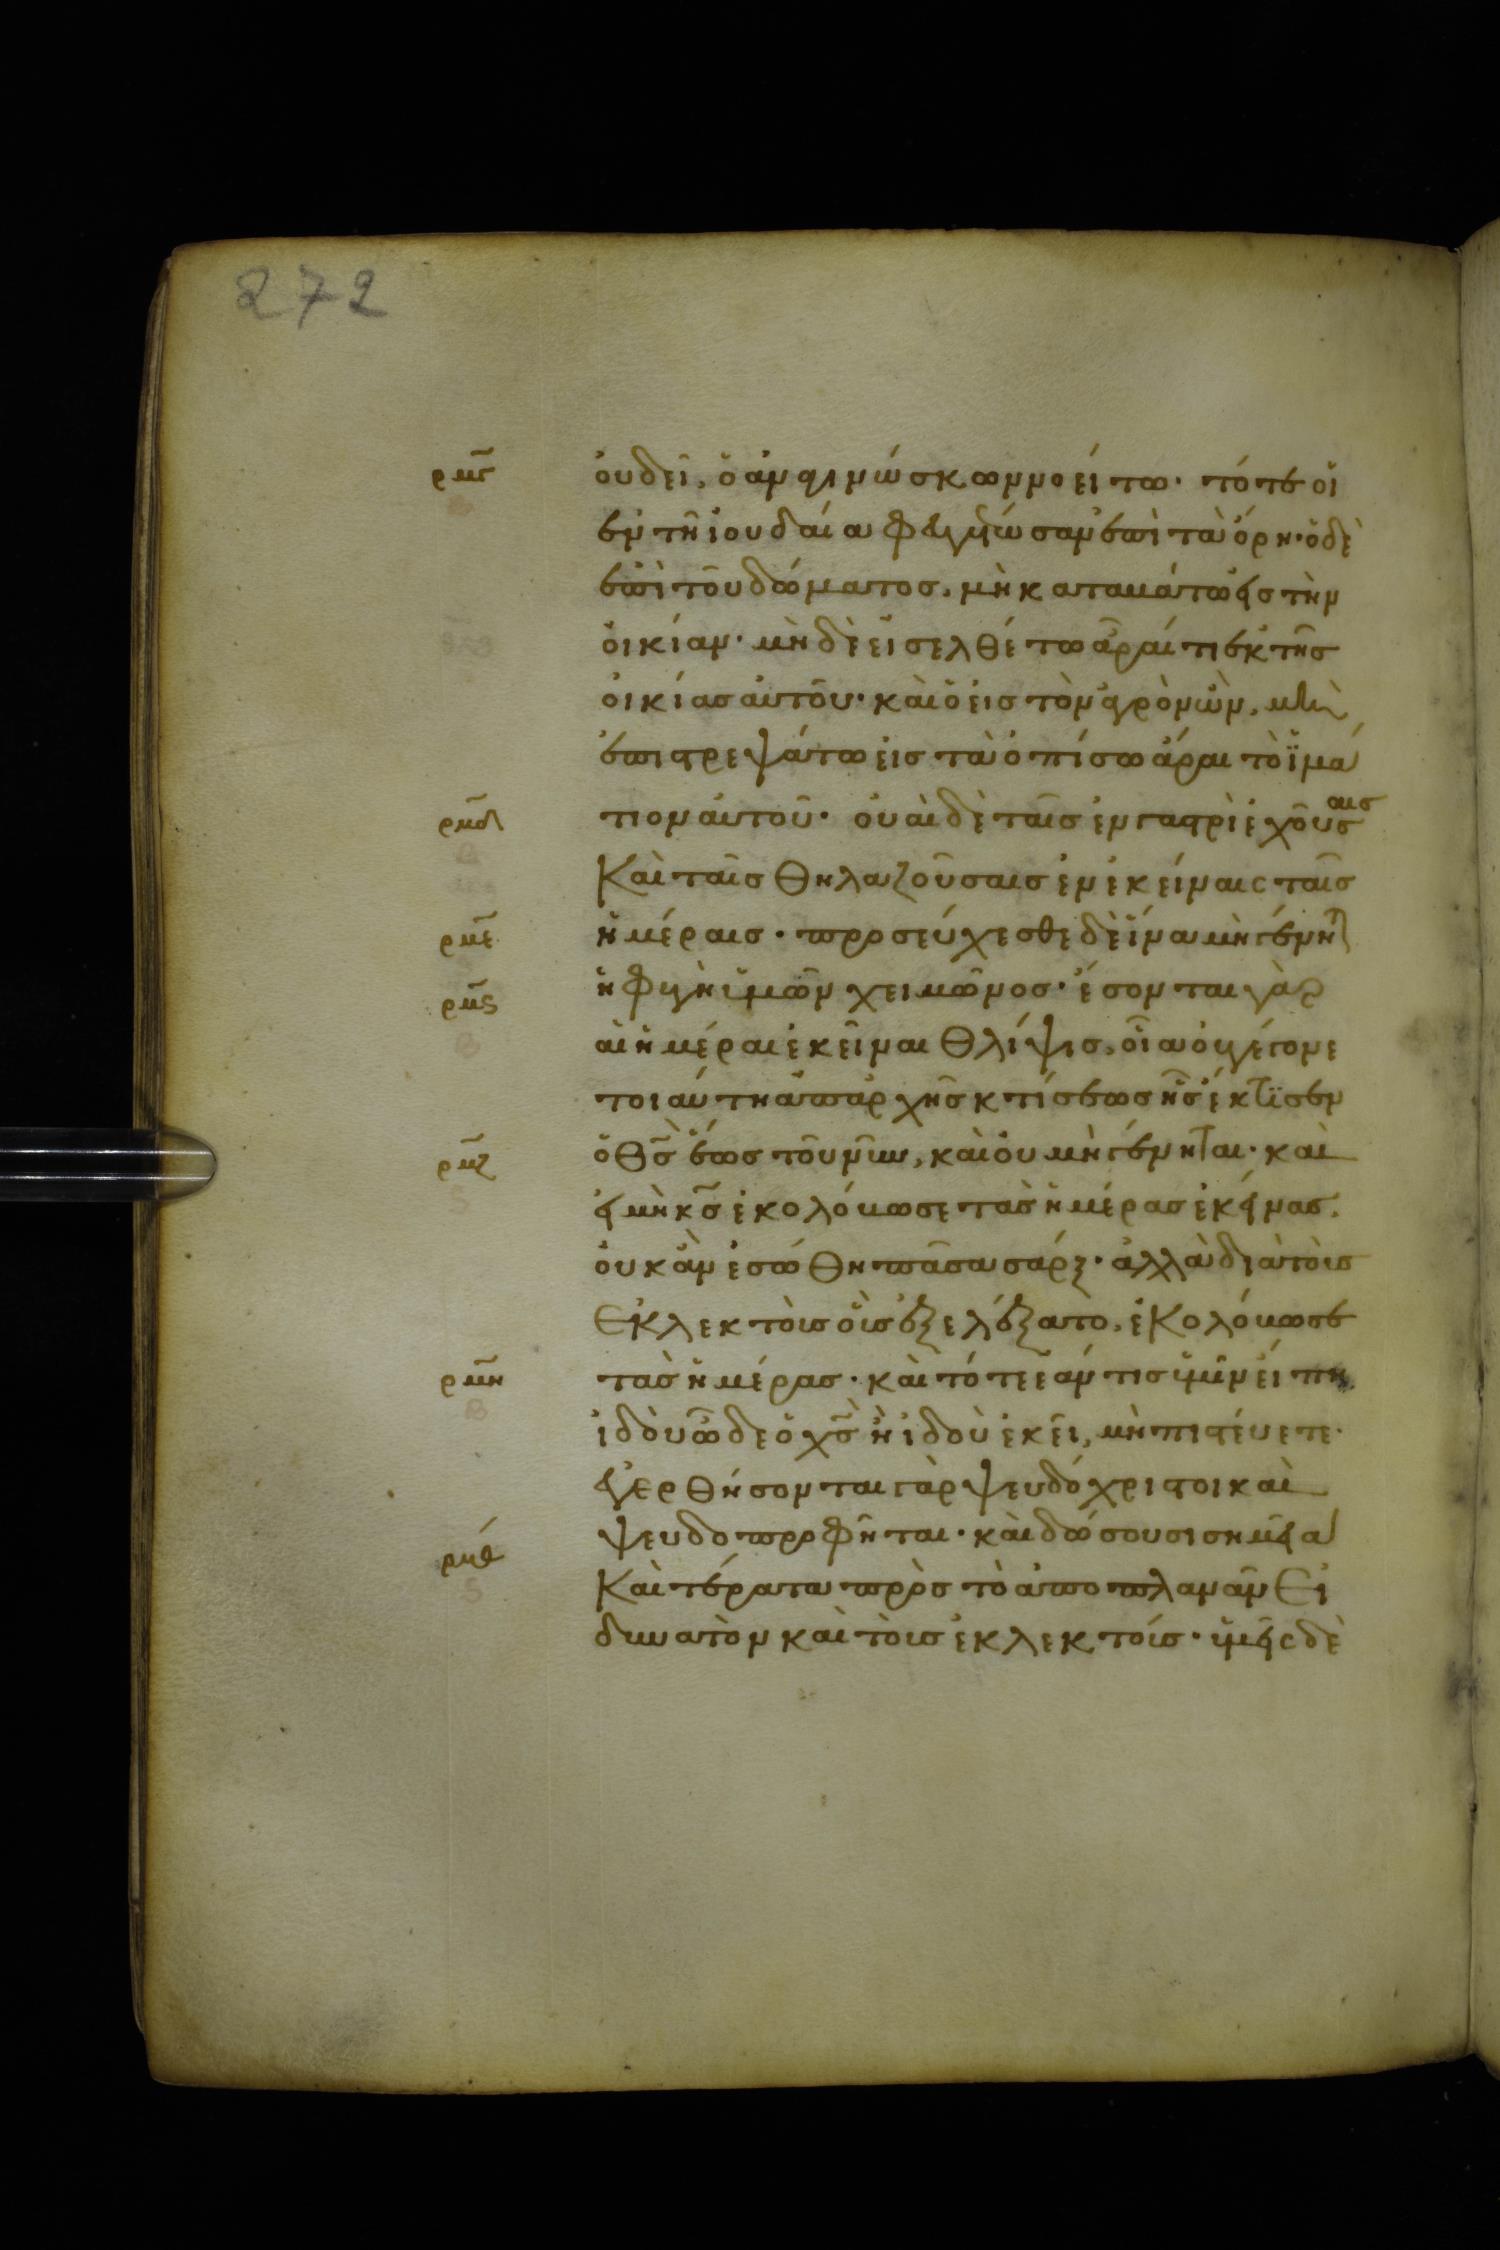 272
ρμγ οὐ δεῖ, ὁ ἀναγινώσκων νοείτω· τότε οἱ
ἐν τῆ ἰουδαία φευγέτωσαν ἐπὶ τὰ ὄρη· ὁ δὲ
ἐπὶ τοῦ δώματος, μὴ καταβάτω εἰς τὴν
οἰκίαν· μὴ δὲ εἰσελθέτω ἆραί τι ἐκ τῆς
οἰκίας αὐτοῦ· καὶ ὁ εἰς τὸν ἀγρὸν ὢν, μὴ
ἐπιστρεψάτω εἰς τὰ ὀπίσω ἆραι τὸ ἱμά
ρμδ τιον αὐτοῦ· οὐαὶ δὲ ταῖς ἐν γαστρὶ ἐχούσαις
Καὶ ταῖς θηλαζούσαις ἐν ἐκείναις ταῖς
ρμε ἡμέραις· προσεύχεσθε δὲ ἵνα μὴ γένηται
ρμς ἡ φυγὴ ὑμῶν χειμῶνος· ἔσονται γὰρ
αἱ ἡμέραι ἐκεῖναι θλίψις, οἵα οὐ γέγονε
τοιαύτη ἀπαρχῆς κτίσεως ἧς ἔκτισεν
ρμζ ὁ θς ἕως τοῦ νῦν, καὶ οὐ μὴ γένηται· καὶ
εἰ μὴ κς ἐκολόβωσε τὰς ἡμέρας ἐκείνας,
οὐκ ἂν ἐσώθη πᾶσα σάρξ· ἀλλὰ διὰ τοὺς
Ἐκλεκτοὺς οὓς ἐξελέξατο, ἐκολόβωσε
ρμη τὰς ἡμέρας· καὶ τότε ἐάν τις ὑμῖν εἴπη
ἰδοὺ ὧδε ὁ χς ἢ ἰδοὺ ἐκεῖ, μὴ πιστεύετε·
ἐγερθήσονται γὰρ ψευδόχριστοι καὶ
ψευδοπροφῆται· καὶ δώσουσι σημεῖα
ρμθ Καὶ τέρατα πρὸς τὸ ἀποπλανᾶν Εἰ
δυνατὸν καὶ τοὺς ἐκλεκτούς· ὑμεῖς δὲ